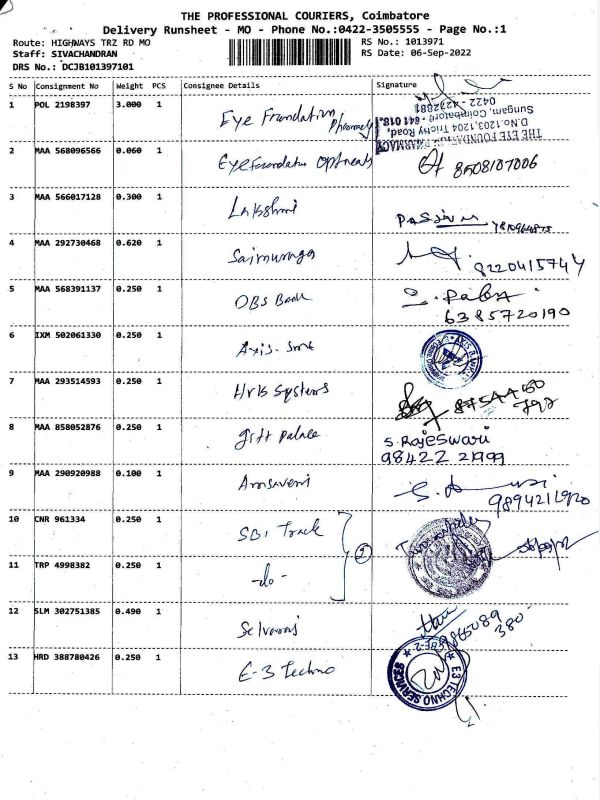 THE PROFESSIONAL COURIERS, Coimbatore
Delivery Runsheet - MO - Phone No.:0422-3505555 - Page No.:1
Route: HIGHWAYS TRZ RD MO
RS No.: 1013971
Staff: SIVACHANDRAN
RS Date: 06-Sep-2022
DRS No.: DCJB101397101
S No Consignment No Weight PCS Consignee Details Signature
1 POL 2198397 3.000 1 Eye Foundation Pharmacy
THE EYE FOUNDATION PHARMACY
D.No.1203,1204 Trichy Road,
Sungam, Coimbatore - 641 018
0422 - 4272881
2 MAA 568096566 0.060 1 Eye Foundation Opticals 8508107006
3 MAA 566017128 0.300 1 Lakshmi
4 MAA 292730468 0.620 1 Saimuruga 8220415744
5 MAA 568391137 0.250 1 DBS Bank
6385720190
6 IXM 502061330 0.250 1 Axis-
AXIS BANK
7 MAA 293514593 0.250 1 Systems
8 MAA 858052876 0.250 1 Gift palace S. Rajeswari
98422 21999
9 MAA 290920988 0.100 1
10 CNR 961334 0.250 1 SBI Track
2
11 TRP 4998382 0.250 1 -do-
12 SLM 302751385 0.490 1 Selvarani
380
13 HRD 388780426 0.250 1 E-3 Techno
E3 TECHNO SERVICES